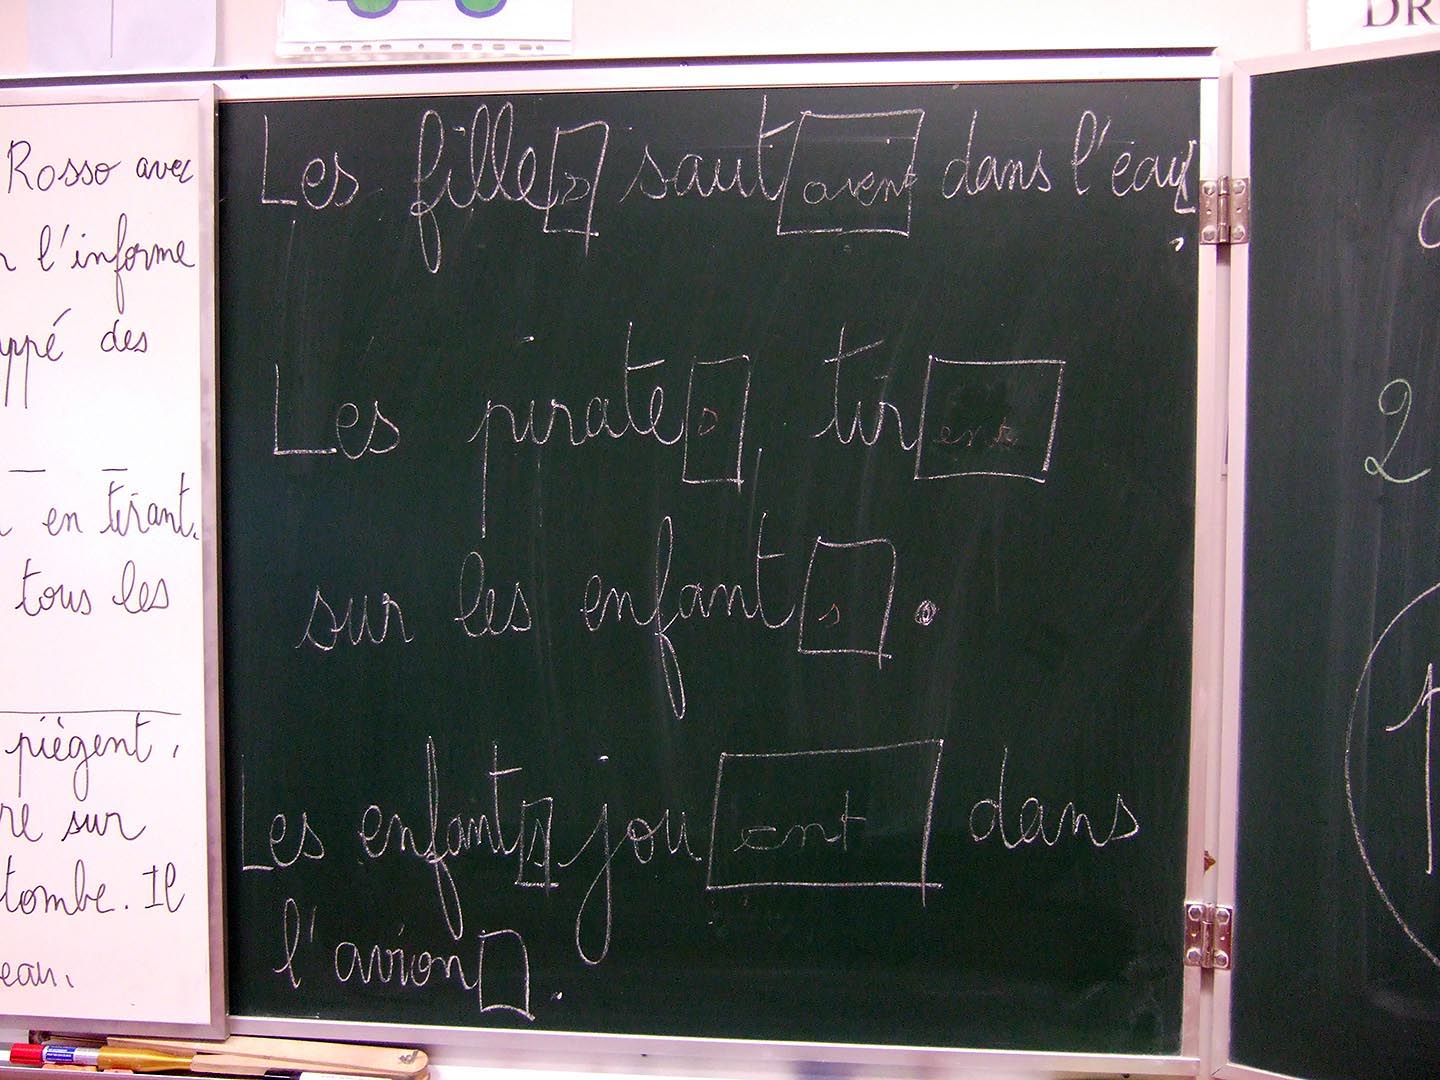 DR
Rosso avec
l'informe
des
en tirant.
tous les
piègent,
sur
tombe. Il
eau.
Les filles sautent dans l'eau
Les pirates tirent
sur les enfants.
Les enfants jouent dans
l'avion.
2